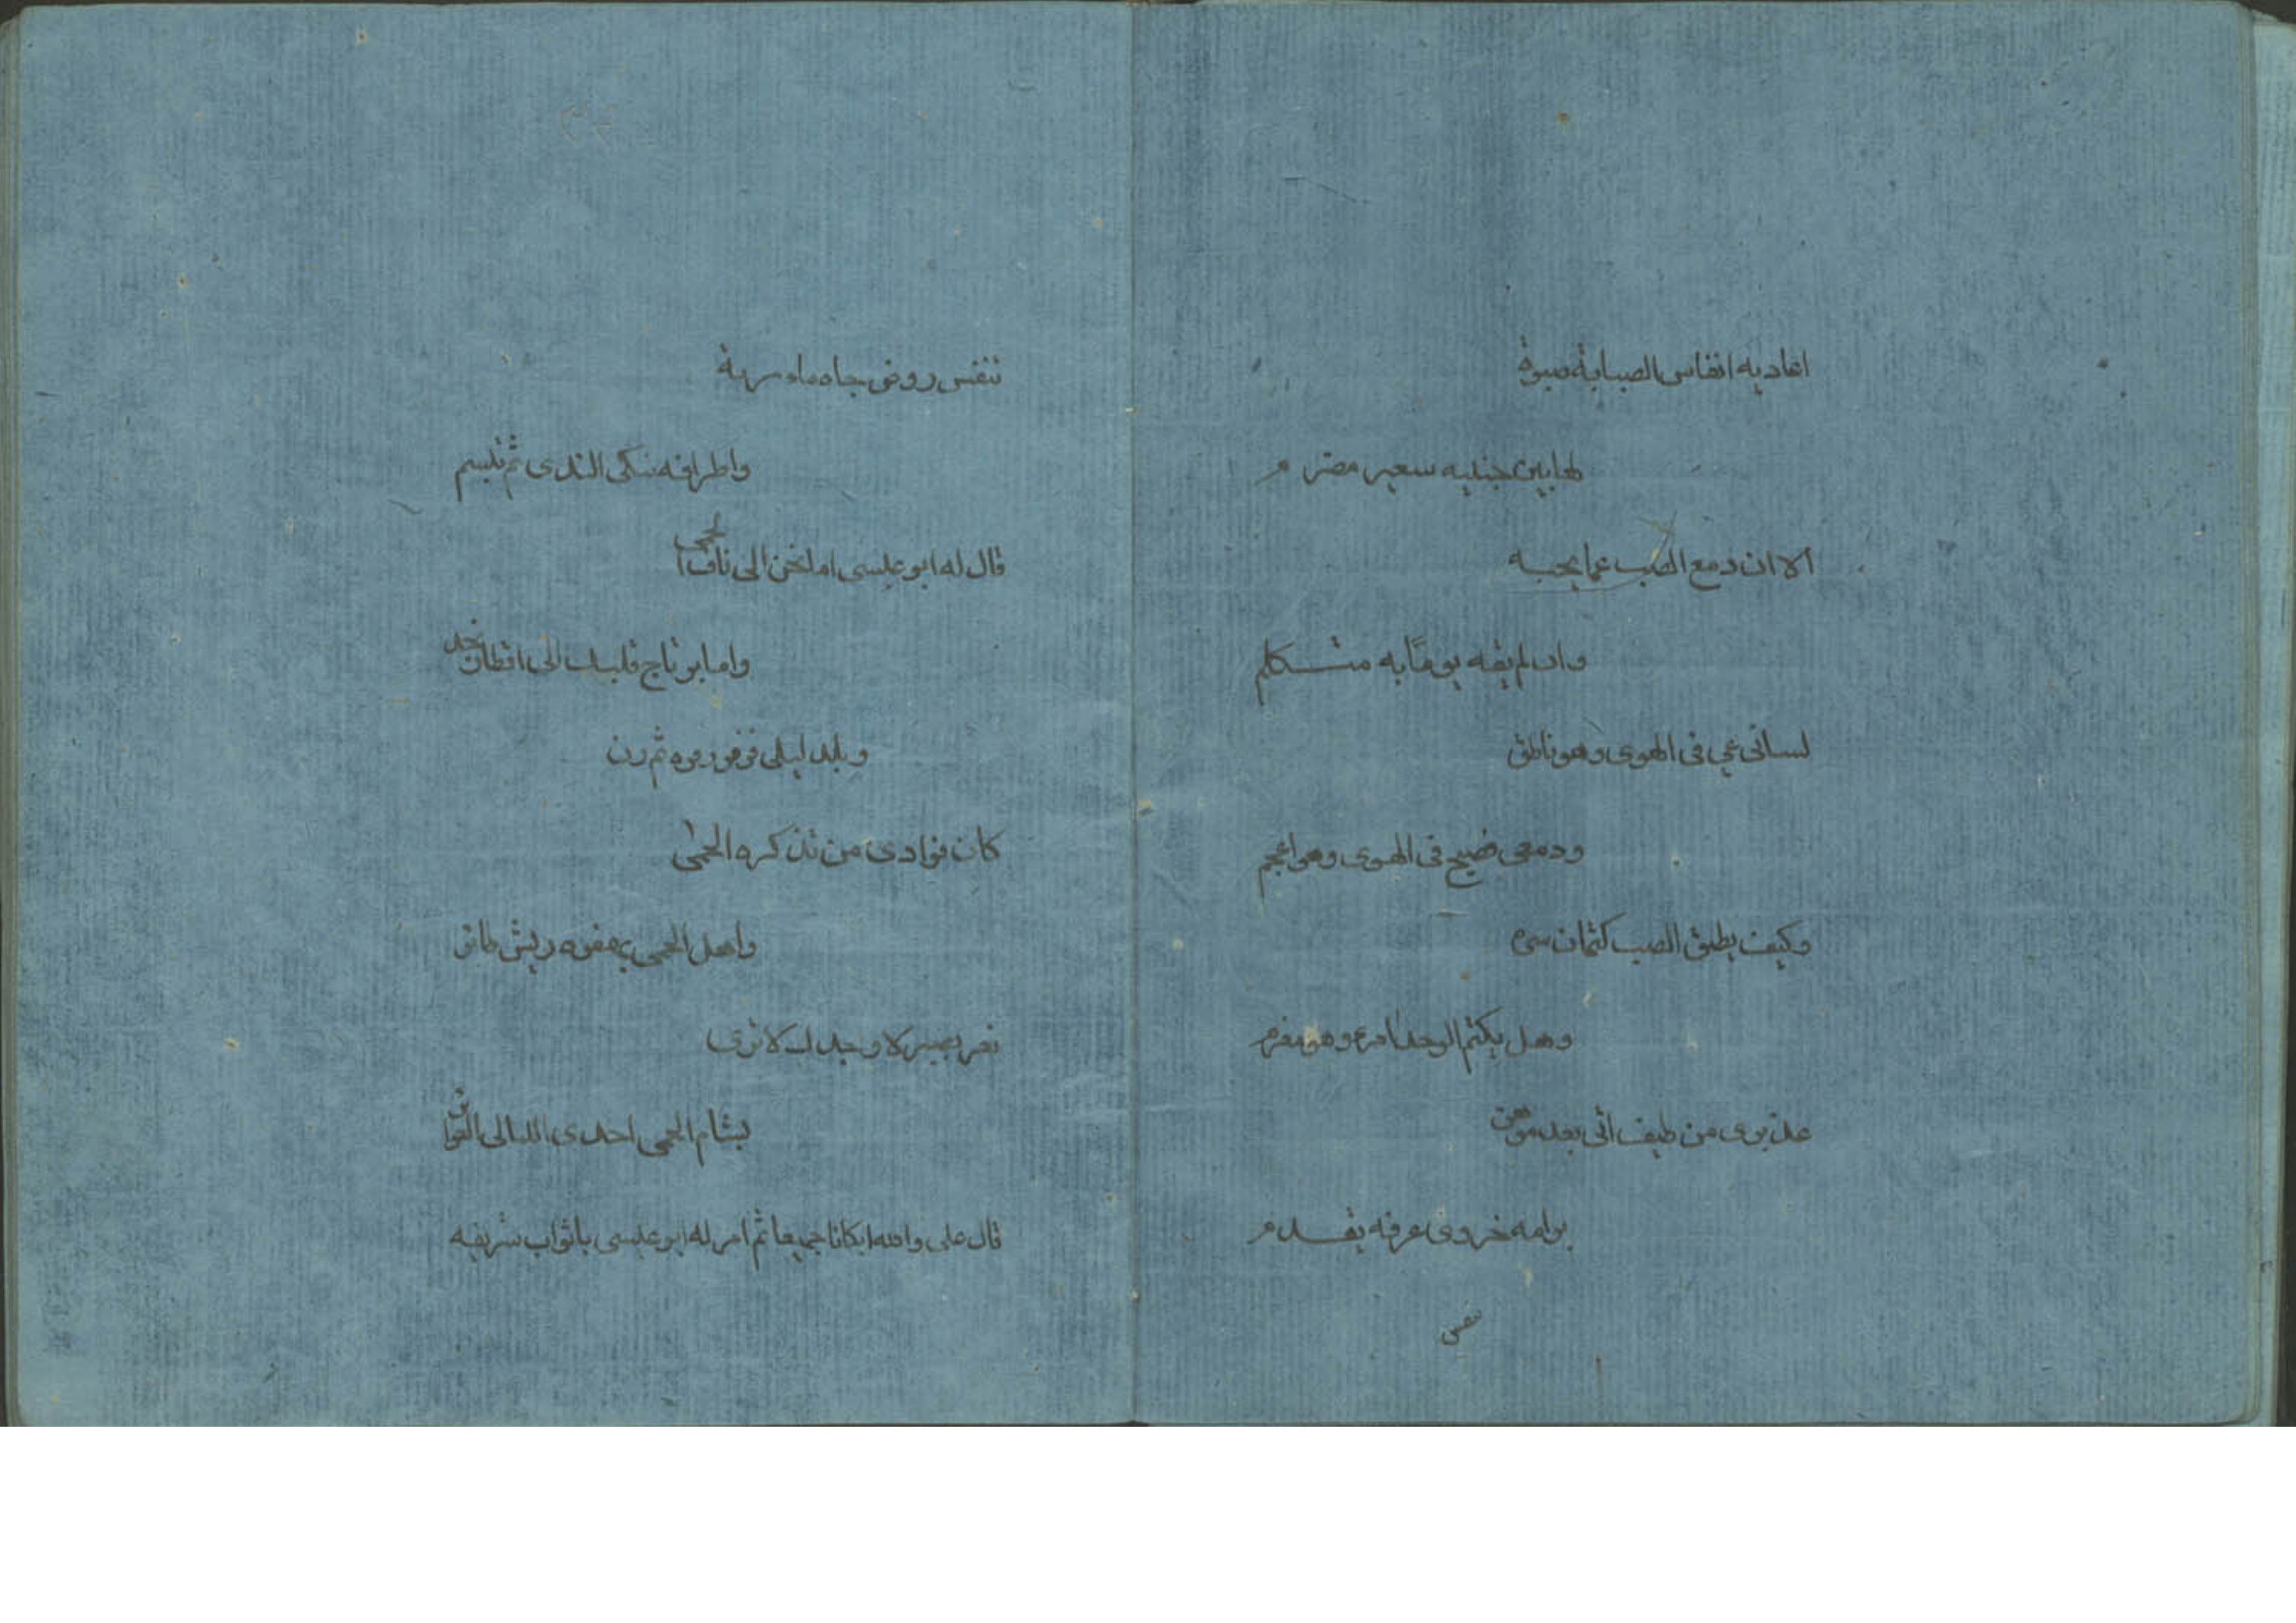 اغاديه انفاس الصبابة صبوة
لها بين جنبيه سعير مضرم
الا ان دمع الصب عما يحبه
وان لم يفه يومًا به متكلم
لسانى عي فى الهوى وهو ناطق
ودمعى فصيح فى الهوى وهو اعجم
وكيف يطيق الصب كتمان سره
وهل يكتم الوجد امرء وهو مغرم
عذيرى من طيف اتى بعد موهن
برامه خروى عرفه يتقدم
تنفس روض جاده
واطرافه تبكى الندى ثم تبسم
قال له ابو عيسى اما نحن الى
واما يرتاج قلبك الى اقطار نجد
وبلد ليلى ثم رن
كان فوادى من تذكره الحمى
واهل الحمى يهفو به ريش طاىر
لا وجدك لا ترى
بشام الحمى احدى الليالى
قال على والله ابكانا جميعا ثم امر له ابو عيسى باثواب شريفه